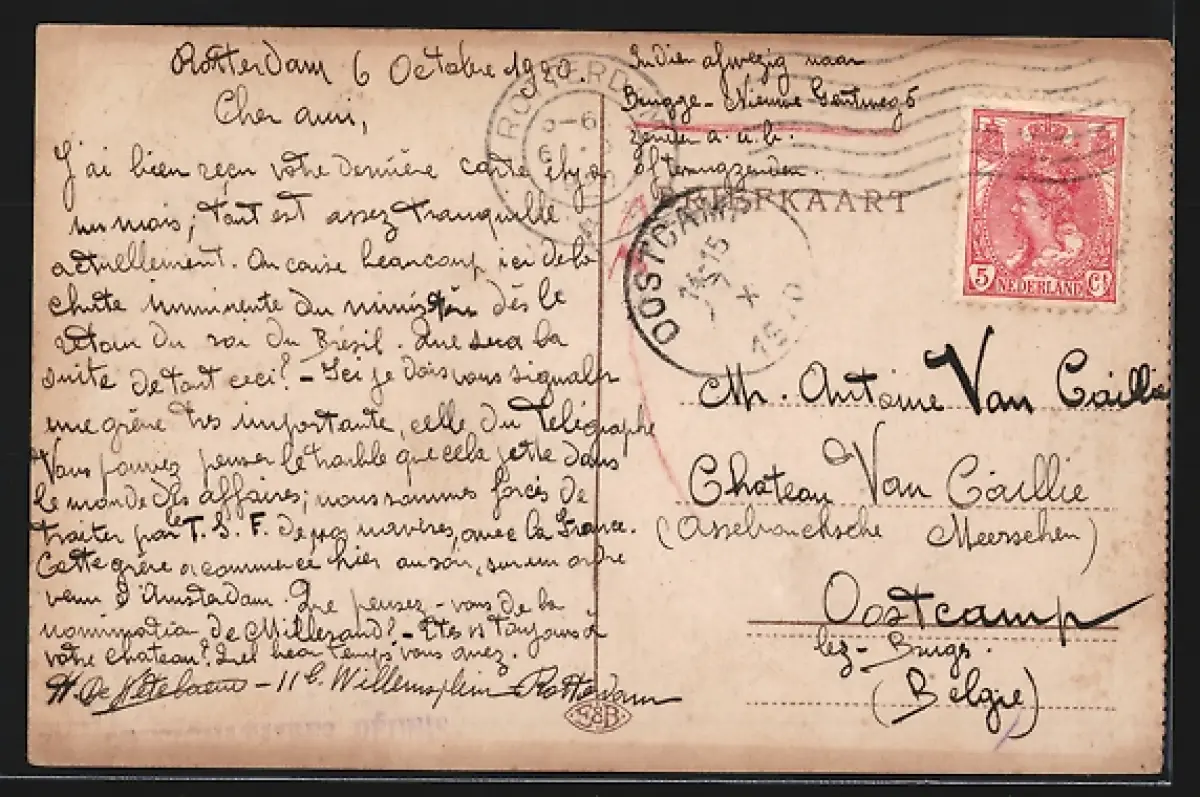 Rotterdam 6 Octobre 1920.
Cher ami,
J'ai bien reçu votre dernière carte il y a
un mois; tout est assez tranquille
actuellement. On cause beaucoup ici de la
chute imminente du ministère dès le
retour du roi du Brésil. Que sera la
suite de tout ceci? - Ici je dois vous signaler
une grève très importante, celle du Télégraphe
Vous pouvez penser le trouble que cela jette dans
le monde des affaires; nous sommes forcés de
traiter par T. S. F. de nos navires, avec la France.
Cette grève a commencé hier au soir, sur un ordre
venu d'Amsterdam. Que pensez-vous de la
nomination de Millerand? - Etes vs toujours à
votre chateau? Quel beau temps vous avez.
H. De - 11 b. Willemsplein - Rotterdam
Indien afwezig naar
Brugge - Nieuwe Gentweg 6
zenden a.u.b.
of terugzenden.
BRIEFKAART
ROTTERDAM
OOSTCAMP
14-15
X
1920
5 NEDERLAND Ct
Mr. Antoine Van Caillie
Chateau Van Caillie
(Assebrouchsche Meerschen)
Oostcamp
lez-Bruges.
(Belgie)
E&B